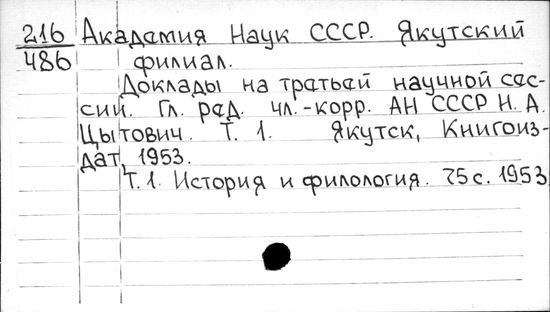 216 Академия Наук СССР. Якутский
486 филиал.
Доклады на третьей научной сес-
сии. Гл. ред. чл.-корр. АН СССР Н. А.
Цытович. Т. 1. Якутск, Книгоиз-
дат, 1953.
Т. 1. История и филология. 75 с. 1953